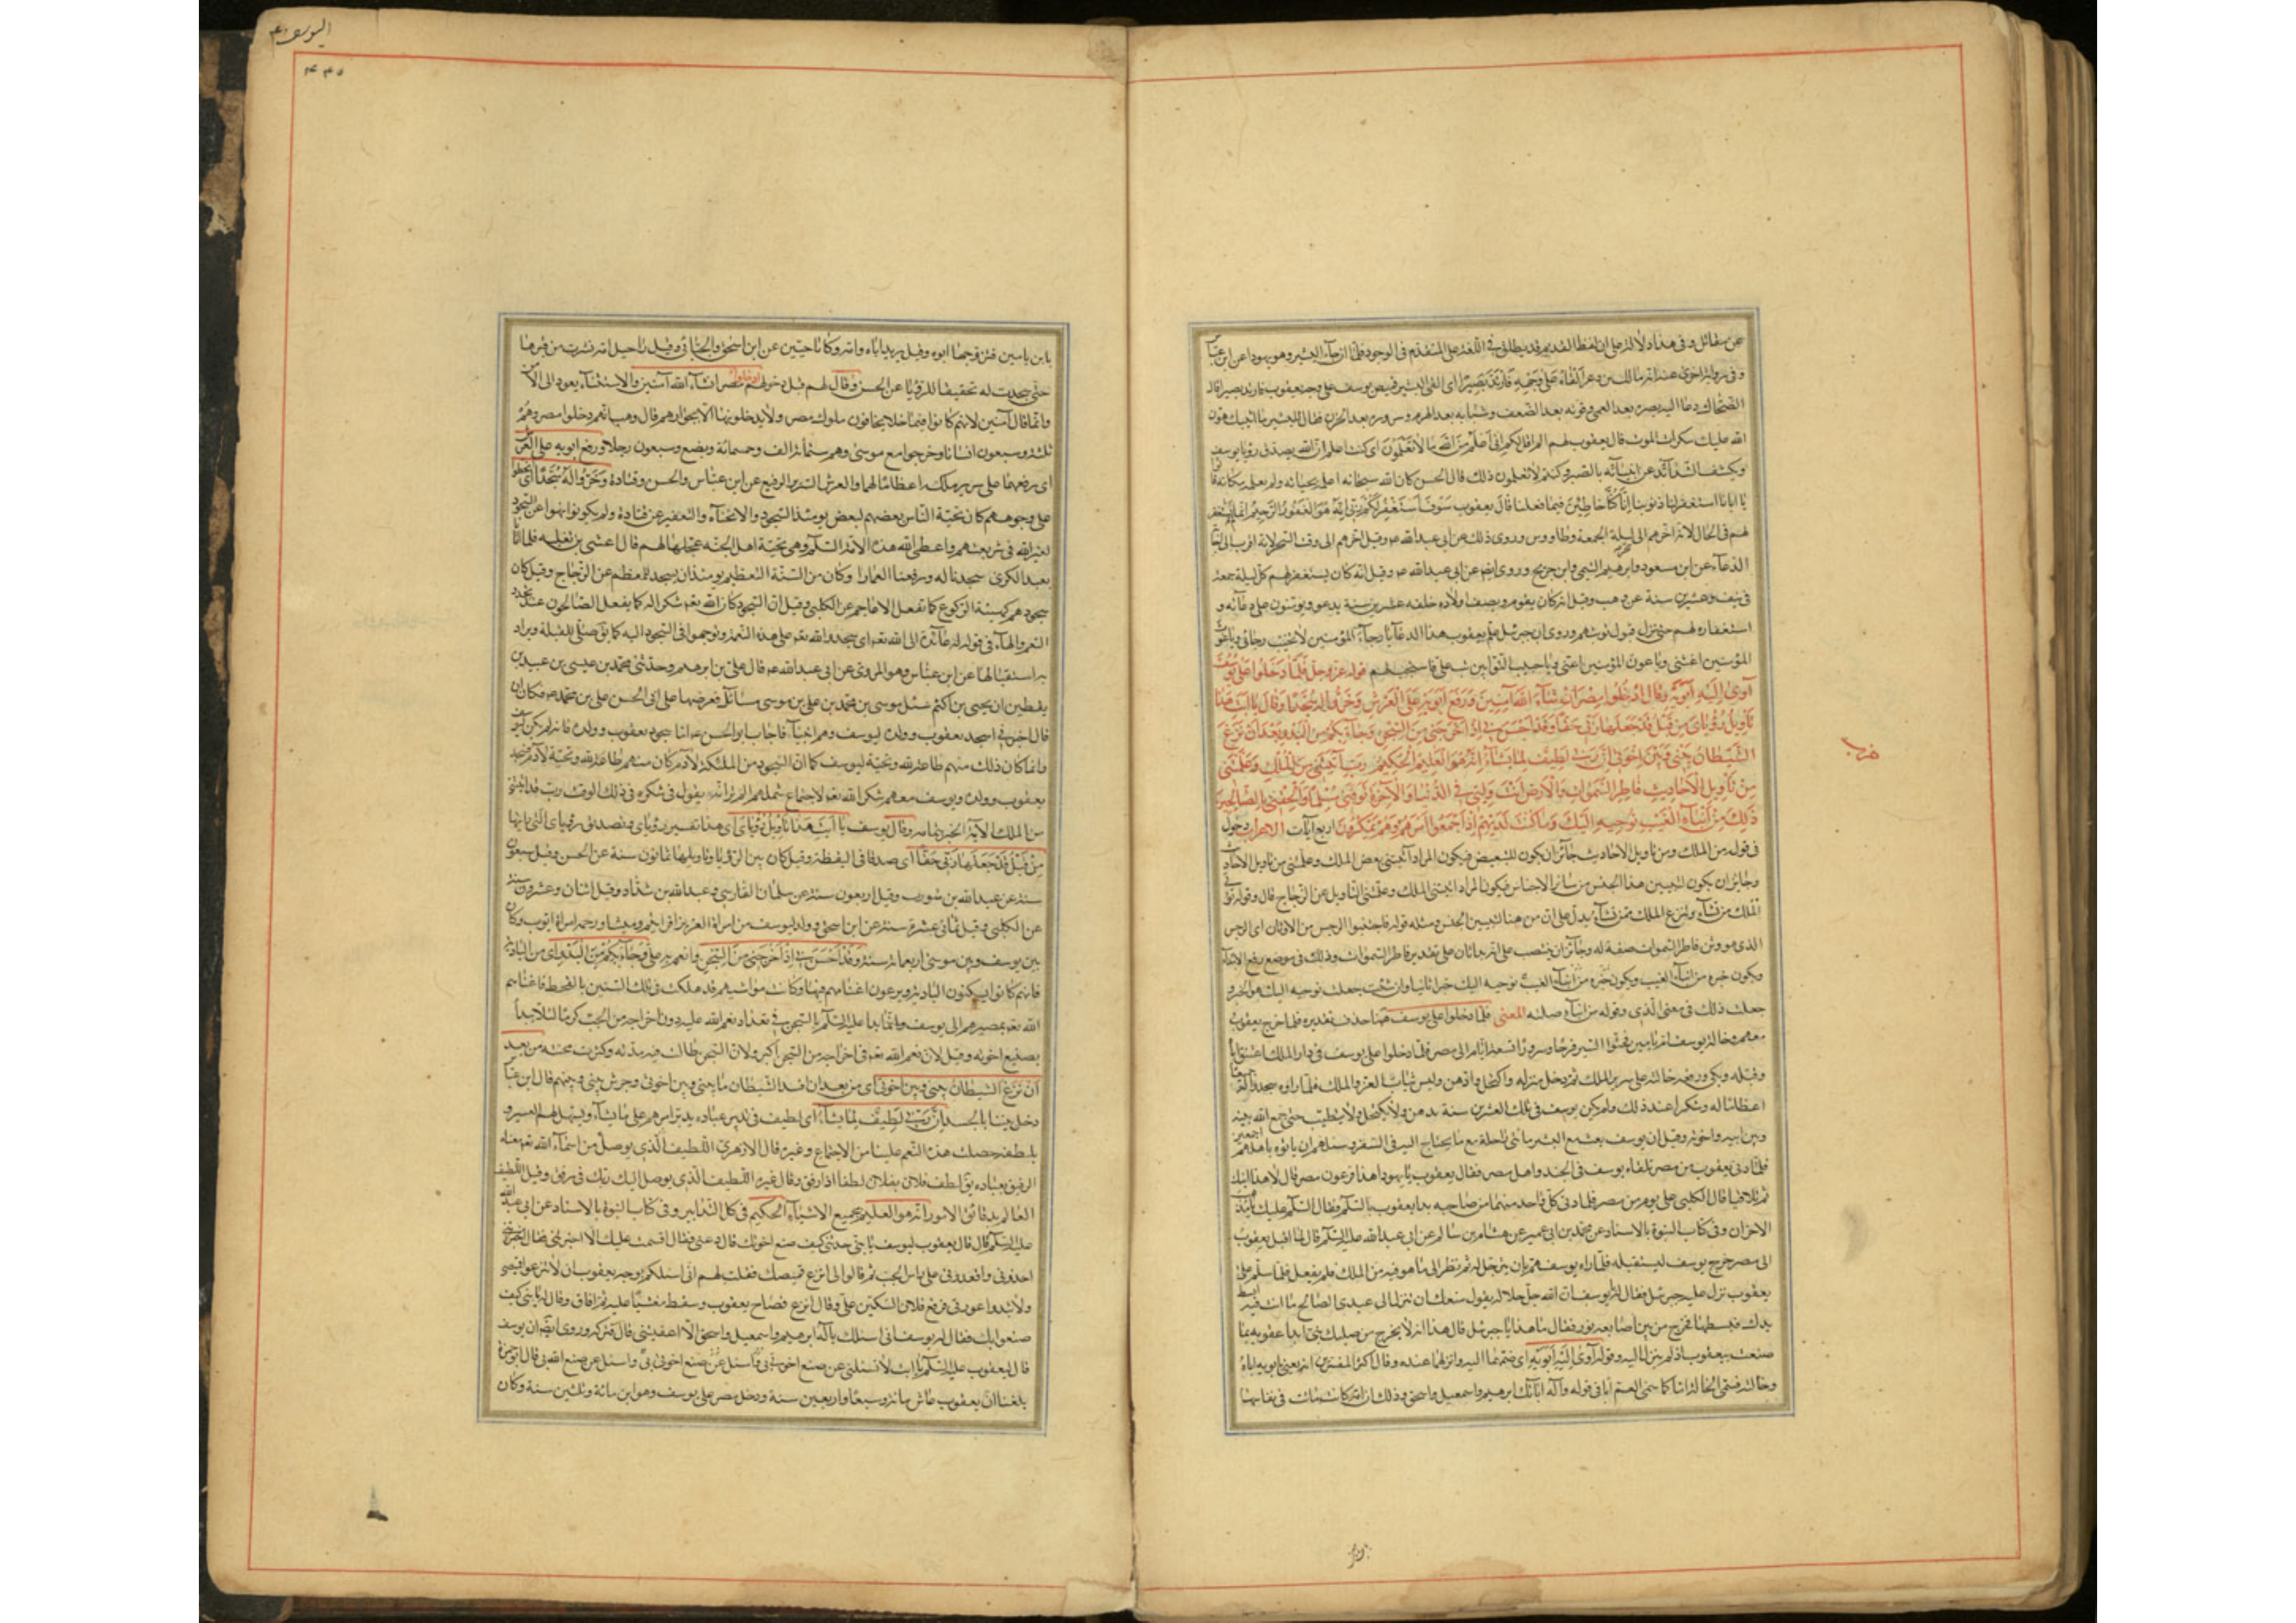 عن مقاتل وفي هذا دلالة على ان لفظ القديم قد يطلق في اللغة على المتقدم في الوجود فلما ان جاء البشير وهو يهودا عن ابن عباس
وفي رواية اخرى عنه انه مالك بن ذعر القاه على وجهه فارتد بصيرا اى القى البشير قميص يوسف على وجه يعقوب فارتد بصيرا قال
الضحاك دعا اليه بصره بعد العمى وقوته بعد الضعف وشبابه بعد الهرم وسروره بعد الحزن فقال للبشير ما اثيبك هون
الله عليك سكرات الموت قال يعقوب لهم الم اقل لكم انى اعلم من الله ما لا تعلمون اى كنت اعلم ان الله يصدق رؤيا يوسف
ويكشف الشدائد عن انبيائه بالصبر وكنتم لا تعلمون ذلك
يا ابانا استغفر لنا ذنوبنا انا كنا خاطئين فيما فعلنا قال يعقوب سوف استغفر لكم ربى انه هو الغفور الرحيم
لهم فى الحال لانه اخرهم الى ليلة الجمعة وطاووس وروى ذلك عن ابى عبد الله ع وقيل اخرهم الى وقت السحر لانه اقرب الى
الدعاء عن ابن مسعود وابرهيم التيمى وابن جريج وروى ايضا عن ابى عبد الله ع وقيل انه كان يستغفر لهم كل ليلة جمعة
فى نيف وعشرين سنة عن وهب وقيل انه كان يقوم ويصف اولاده خلفه عشرين سنة يدعو ويؤمنون على دعائه و
استغفاره لهم حتى نزل قبول توبتهم وروى ان جبرئيل علم يعقوب هذا الدعاء يا رجاء المؤمنين لا تخيب رجائى ويا غوث
المؤمنين اغثنى ويا عون المؤمنين اعنى ويا حبيب التوابين تب على فاستجيب لهم قوله عز وجل فلما دخلوا على يوسف
آوى اليه ابويه وقال ادخلوا مصر ان شاء الله آمنين ورفع ابويه على العرش وخروا له سجدا وقال يا ابت هذا
تأويل رؤياى من قبل قد جعلها ربى حقا وقد احسن بى اذ اخرجنى من السجن وجاء بكم من البدو من بعد ان نزغ
الشيطان بينى وبين اخوتى ان ربى لطيف لما يشاء انه هو العليم الحكيم رب قد آتيتنى من الملك وعلمتنى
من تأويل الاحاديث فاطر السموات والارض انت وليى فى الدنيا والآخرة توفنى مسلما والحقنى بالصالحين
ذلك من انباء الغيب نوحيه اليك وما كنت لديهم اذ اجمعوا امرهم وهم يمكرون اربع آيات الاعراب دخول
فى قوله من الملك ومن تأويل الاحاديث جائز ان يكون للتبعيض فيكون المراد آتيتنى بعض الملك وعلمتنى من تأويل الاحاديث
وجائز ان يكون لتبيين هذا الجنس من سائر الاجناس فيكون المراد آتيتنى الملك وعلمتنى التأويل عن الزجاج قال وقوله تؤتى
الملك من تشاء وتنزع الملك ممن تشاء يدل على ان من هنا لتبيين الجنس ومثله قوله فاجتنبوا الرجس من الاوثان اى الرجس
الذى هو وثن فاطر السموات صفة له وجائز ان ينتصب على انه نداء ثان على تقدير يا فاطر السموات وذلك فى موضع رفع بالابتداء
ويكون خبره من انباء الغيب ويكون نوحيه اليك خبرا ثانيا وان شئت جعلت نوحيه اليك هو الخبر و
جعلت ذلك فى معنى الذى وقوله من انباء صلته المعنى فلما دخلوا على يوسف هنا حذف تقديره فلما خرج يعقوب
معهم وخالة يوسف ام يامين نفثوا السير فرحا وسرورا تسعة ايام الى مصر فلما دخلوا على يوسف فى دار الملك اعتنق اباه
وقبله وبكى ورفعه خالته على سرير الملك ثم دخل منزله واكتحل وادهن ولبس ثياب العز والملك فلما رأوه سجدوا
اعظاما له وشكرا عند ذلك ولم يكن يوسف فى تلك العشرين سنة يدهن ولا يكتحل ولا يتطيب حتى جمع الله بينه
وبين ابيه واخوته وقيل ان يوسف بعث مع البشير مائتى راحلة مع ما يحتاج اليه فى السفر وسألهم ان يأتوه باهلهم اجمعين
فلما دنى يعقوب من مصر تلقاه يوسف فى الجند واهل مصر فقال يعقوب يا يهودا هذا فرعون مصر قال لا هذا ابنك
ثم تلاقيا قال الكلبى على يوم من مصر فلما دنى كل واحد منهما من صاحبه بدأ يعقوب بالسلام وقال السلام عليك يا مذهب
الاحزان وفى كتاب النبوة بالاسناد عن محمد بن ابى عمير عن هشام بن سالم عن ابى عبد الله عليه السلام قال لما اقبل يعقوب
الى مصر خرج يوسف ليستقبله فلما رآه يوسف هم بان يترجل له ثم نظر الى ما هو فيه من الملك فلم يفعل فلما سلم على
يعقوب نزل عليه جبرئيل فقال له يا يوسف ان الله جل جلاله يقول منعك ان تنزل الى عبدى الصالح ما انت فيه ابسط
يدك فبسطها فخرج من بين اصابعه نور فقال ما هذا يا جبرئيل قال هذا انه لا يخرج من صلبك نبى ابدا عقوبة بما
صنعت بيعقوب اذ لم تنزل اليه وقوله آوى اليه ابويه اى ضمهما اليه وانزلهما عنده وقال اكثر المفسرين انه يعنى بابويه اباه
وخالته فسمى الخالة اما كما سمى العم ابا فى قوله وآله آبائك ابرهيم واسمعيل واسحق وذلك ان امه كانت ماتت فى نفاسها
اليوسف
بابن يامين فتزوجها ابوه وقيل يريد اباه وامه وكانا حيين عن ابن اسحق والجبائى وقيل ان راحيل امه نشرت من قبرها
حتى سجدت له تحقيقا للرؤيا عن الحسن وقال لهم قبل دخولهم مصر ادخلوا مصر ان شاء الله آمنين والاستثناء يعود الى الامن
وانما قال آمنين لانهم كانوا فيما خلا يخافون ملوك مصر ولا يدخلونها الا بجوازهم قال وهب انهم دخلوا مصر وهم
ثلثة وسبعون انسانا وخرجوا مع موسى وهم ستمائة الف وخمسمائة وبضع وسبعون رجلا ورفع ابويه على العرش
اى رفعهما على سرير ملكه اعظاما لهما والعرش السرير الرفيع عن ابن عباس والحسن وقتادة وخروا له سجدا اى انحطوا
على وجوههم كان تحية الناس بعضهم لبعض يومئذ السجود والانحناء والتعفير عن قتادة ولم يكونوا نهوا عن السجود
لغير الله فى شريعتهم واعطى الله هذه الامة السلام وهى تحية اهل الجنة عجلها لهم قال اعشى بن ثعلبه فلما اتانا
بعيد الكرى سجدنا له ورفعنا العمارا وكان من السنة التعظيم يومئذ ان يسجد للمعظم عن الزجاج وقيل كان
سجودهم كهيئة الركوع كما تفعل الاعاجم عن الكلبى وقيل ان السجود كان لله تعالى شكرا له كما يفعل الصالحون عند تجدد
النعم والهاء فى قوله له عائدة الى الله تعالى اى سجدوا لله تعالى على هذه النعمة وتوجهوا فى السجود اليه كما يقال صلى للقبلة ويراد
به استقبالها عن ابن عباس وهو المروى عن ابى عبد الله ع قال على بن ابرهيم وحدثنى محمد بن عيسى بن عبيد بن
يقطين ان يحيى بن اكثم سئل موسى بن محمد بن على بن موسى مسائل فعرضها على ابى الحسن على بن محمد ع فكان ان
قال اخبرنى اسجد يعقوب وولده ليوسف وهم انبياء فاجاب ابو الحسن ع اما سجود يعقوب وولده فانه لم يكن ليوسف
وانما كان ذلك منهم طاعة لله وتحية ليوسف كما ان السجود من الملئكة لآدم كان منهم طاعة لله وتحية لآدم فسجد
يعقوب وولده ويوسف معهم شكرا لله تعالى لاجتماع شملهم الم تر انه يقول فى شكره فى ذلك الوقت رب قد آتيتنى
من الملك الآية وقال يوسف يا ابت هذا تأويل رؤياى اى هذا تفسير رؤياى وتصديق رؤياى التى رأيتها
من قبل قد جعلها ربى حقا اى صدقا فى اليقظة وقيل كان بين الرؤيا وتأويلها ثمانون سنة عن الحسن وقيل سبعون
سنة عن عبد الله بن شوذب وقيل اربعون سنة عن سلمان الفارسى وعبد الله بن شداد وقيل اثنان وعشرون سنة
عن الكلبى وقيل ثمانى عشرة سنة عن ابن اسحق وولد ليوسف من امرأة العزيز افرائيم وميشا ورحمة امرأة ايوب وكان
بين يوسف وبين موسى اربعمائة سنة وقد احسن بى اذ اخرجنى من السجن وانعم به على وجاء بكم من البدو اى من البادية
فانهم كانوا يسكنون البادية ويرعون اغنامهم فيها وكانت مواشيهم قد هلكت فى تلك السنين بالقحط فاغناهم
الله تعالى بمصيرهم الى يوسف وانما بدأ عليه السلام بالسجن فى تعداد نعم الله عليه دون اخراجه من الجب كرما لئلا يبدأ
بصنيع اخوته وقيل لان نعم الله تعالى فى اخراجه من السجن اكبر ولان السجن طالت فيه مدته وكثرت محنته من بعد
ان نزغ الشيطان بينى وبين اخوتى اى من بعد ان افسد الشيطان ما بينى وبين اخوتى وحرش بينى وبينهم قال ابن عباس
دخل بيننا بالحسد ان ربى لطيف لما يشاء اى لطيف فى تدبير عباده يدبر امرهم على ما يشاء ويسهل لهم العسير و
بلطفه حصلت هذه النعم علينا من الاجتماع وغيره قال الازهرى اللطيف الذى يوصل من اسماء الله تعالى معناه
الرفيق بعباده يقال لطف فلان بفلان لطفا اذا رفق وقال غيره اللطيف الذى يوصل اليك ربك فى رفق وقيل اللطيف
العالم بدقائق الامور انه هو العليم بجميع الاشياء الحكيم فى كل التدابير وفى كتاب النبوة بالاسناد عن ابى عبد الله
عليه السلام قال قال يعقوب ليوسف يا بنى حدثنى كيف صنع اخوتك قال دعنى فقال اقسمت عليك الا اخبرتنى فقال
اخذونى واقعدونى على رأس الجب ثم قالوا لى انزع قميصك فقلت لهم انى اسئلكم بوجه يعقوب ان لا تنزعوا قميصى
ولا تبدوا عورتى فرفع فلان السكين على وقال انزع فصاح يعقوب وسقط مغشيا عليه ثم افاق وقال له يا بنى كيف
صنعوا بك فقال له يوسف انى اسئلك باله ابرهيم واسمعيل واسحق الا اعفيتنى قال فتركه وروى ايضا ان يوسف
قال ليعقوب عليه السلام يا ابت لا تسئلنى عن صنع اخوتى بى واسئل عن صنع الله بى قال ابو حمزة
بلغنا ان يعقوب عاش مائة وسبعا واربعين سنة ودخل مصر على يوسف وهو ابن مائة وثلثين سنة وكان